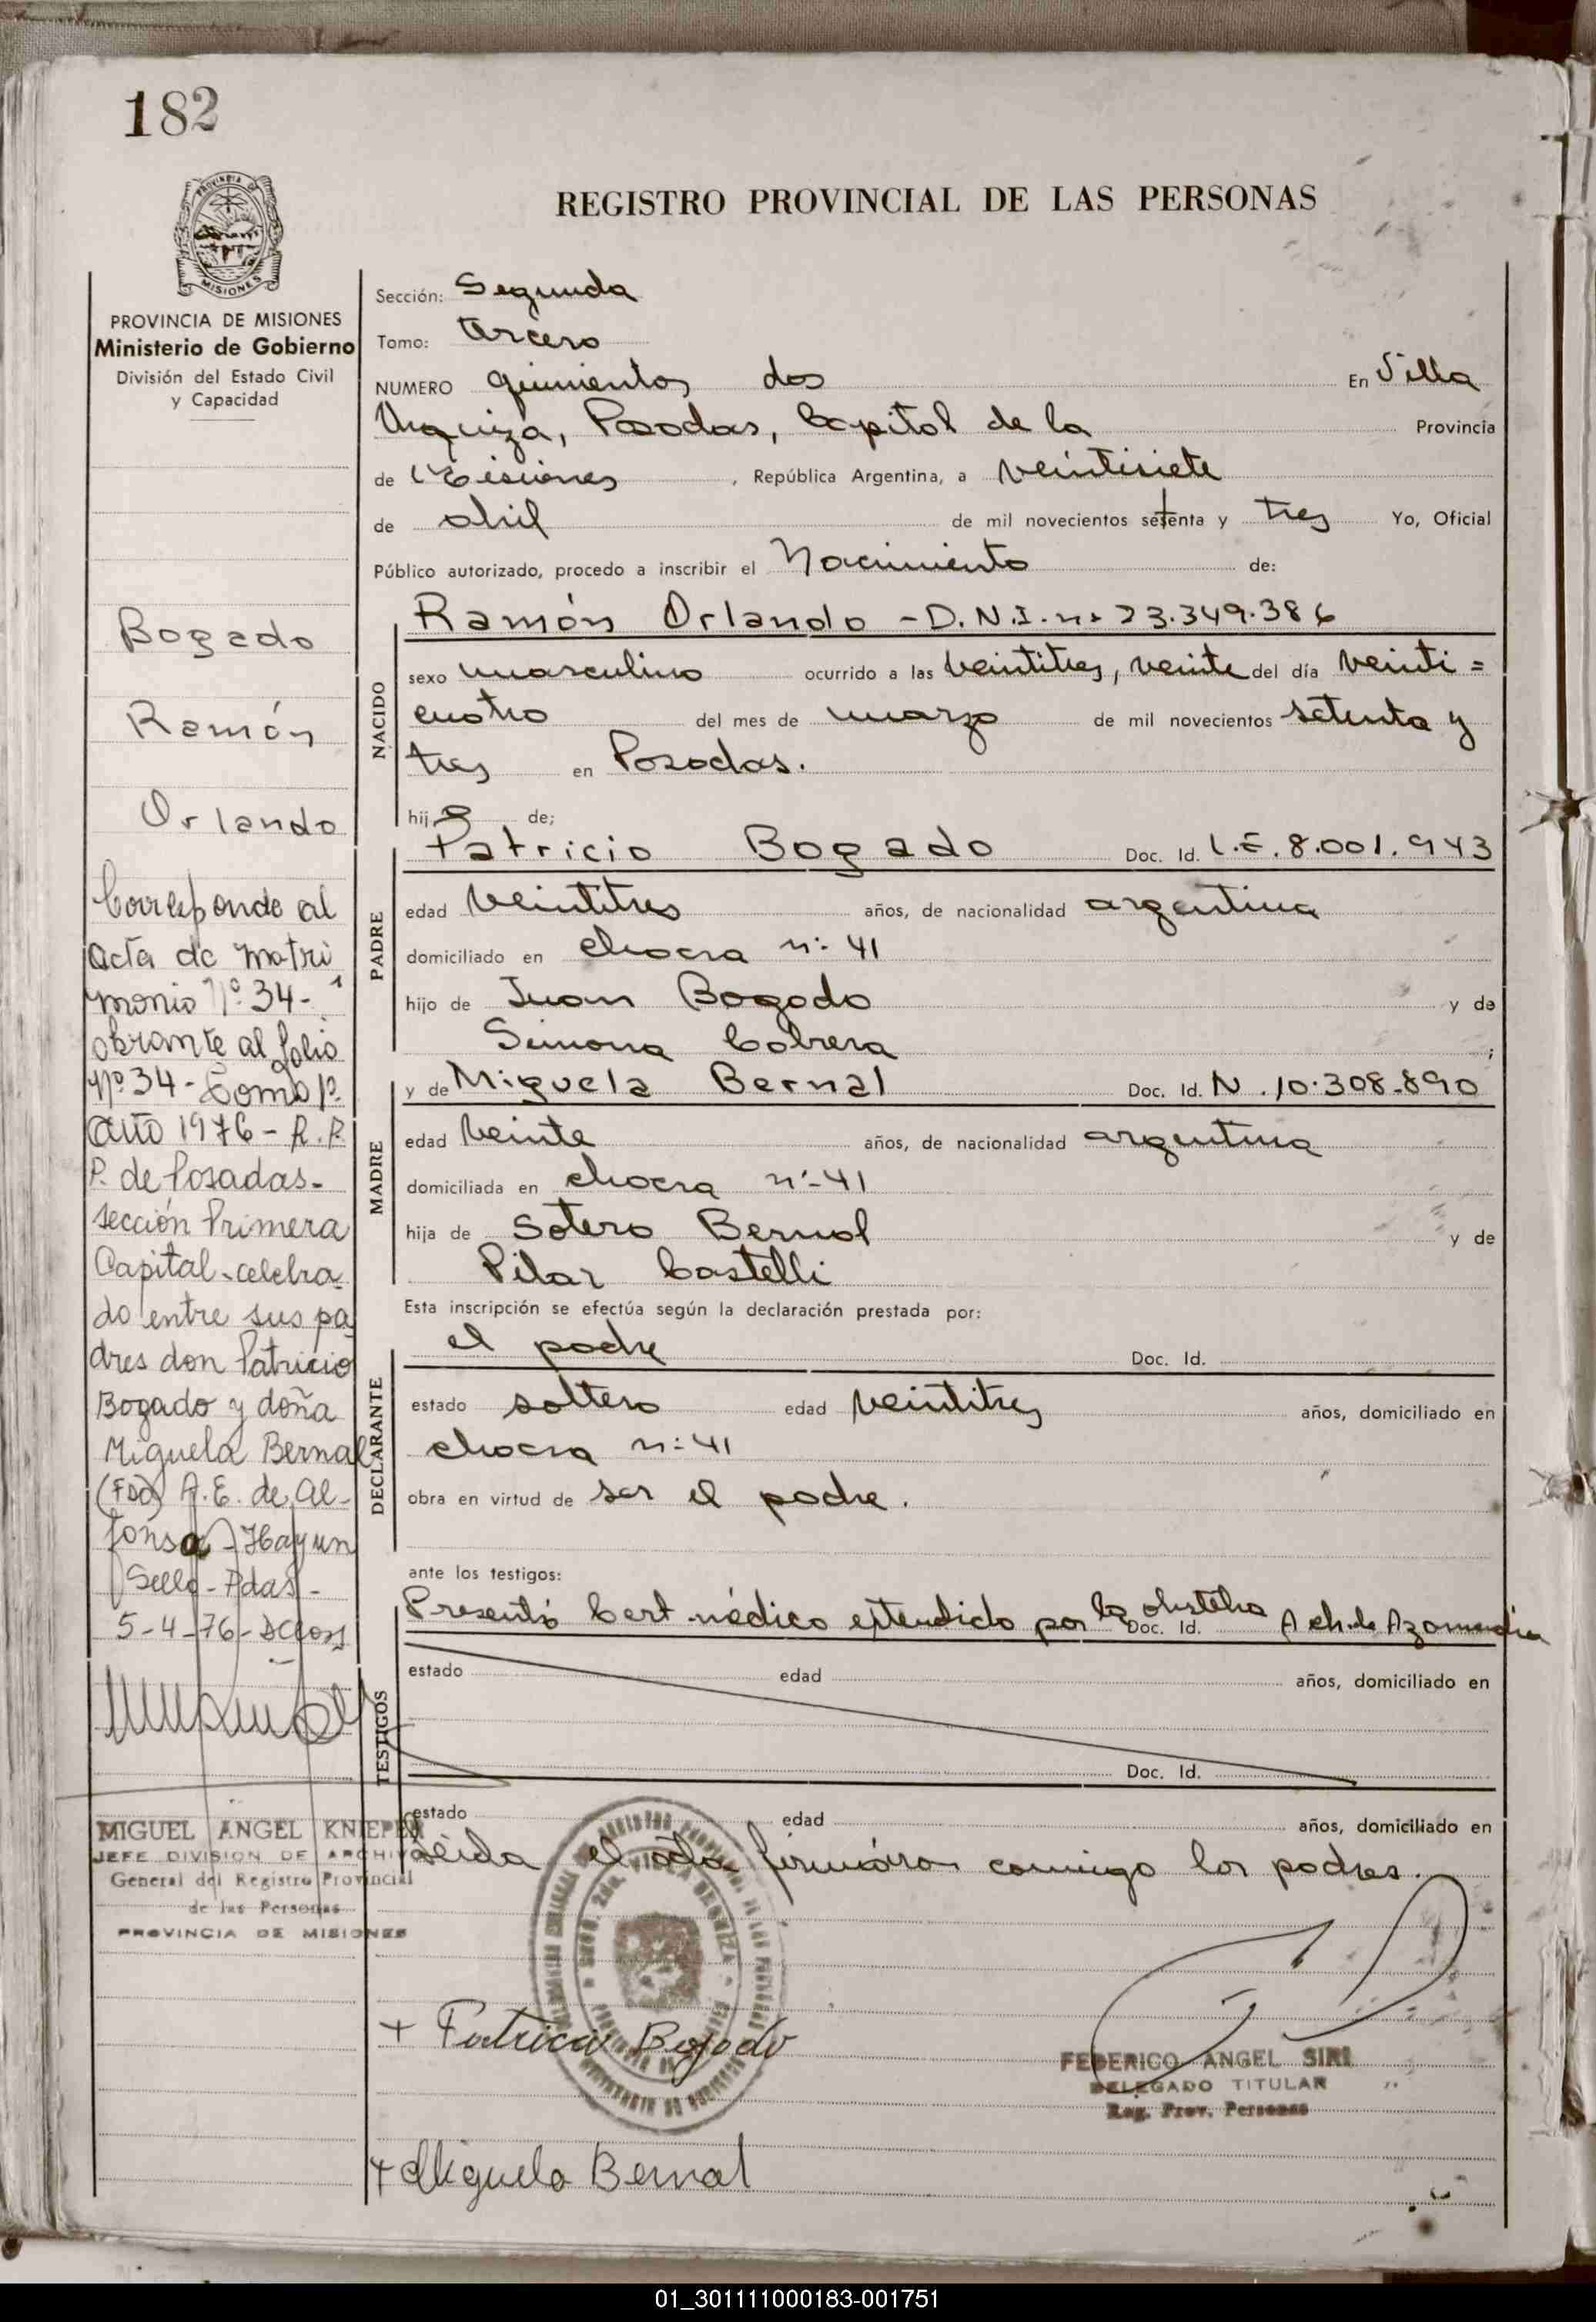 182
PROVINCIA DE
MISIONES
PROVINCIA DE MISIONES
Ministerio de Gobierno
División del Estado Civil
y Capacidad
Bogado
Ramón
Orlando
Corresponde al
acta de matri
monio Nº 34-
obrante al folio
Nº 34 - Tomo 1º
año 1976 - R.P.
P. de Posadas -
sección Primera
Capital - celebra
do entre sus pa
dres don Patricio
Bogado y doña
Miguela Bernal
(Fdo) A. E. de Al-
fonso - Hay un
Sello - Pdas -
5-4-76 -
MIGUEL ANGEL KNIEPER
JEFE DIVISION DE ARCHIVO
General del Registro Provincial
de las Personas
PROVINCIA DE MISIONES
REGISTRO PROVINCIAL DE LAS PERSONAS
Sección: Segunda
Tomo: tercero
NUMERO quinientos dos En Villa
Urquiza, Posadas, Capital de la Provincia
de Misiones, República Argentina, a veintisiete
de abril de mil novecientos setenta y tres Yo, Oficial
Público autorizado, procedo a inscribir el Nacimiento de:
NACIDO
Ramón Orlando - D.N.I. nº 23.349.386
sexo masculino ocurrido a las veintitres, veinte del día veinti =
cuatro del mes de marzo de mil novecientos setenta y
tres en Posadas.
hij o de;
PADRE
Patricio Bogado Doc. Id. L.E. 8.001.943
edad veintitres años, de nacionalidad argentina
domiciliado en chacra nº 41
hijo de Juan Bogado y de
Simona Cabrera ;
MADRE
y de Miguela Bernal Doc. Id. N. 10.308.890
edad veinte años, de nacionalidad argentina
domiciliada en chacra nº 41
hija de Sotero Bernal y de
Pilar Castelli
Esta inscripción se efectúa según la declaración prestada por:
DECLARANTE
el padre Doc. Id.
estado soltero edad veintitres años, domiciliado en
chacra nº 41
obra en virtud de ser el padre.
ante los testigos:
TESTIGOS
Presentó Cert. médico extendido por la obstetra Doc. Id. A ch. de Azamendia
estado edad años, domiciliado en
Doc. Id.
estado edad años, domiciliado en
Leida el acta firmaron conmigo los padres.
+ Patricio Bogado
FEDERICO ANGEL SIRI
DELEGADO TITULAR
Reg. Prov. Personas
+ Miguela Bernal
01_301111000183-001751